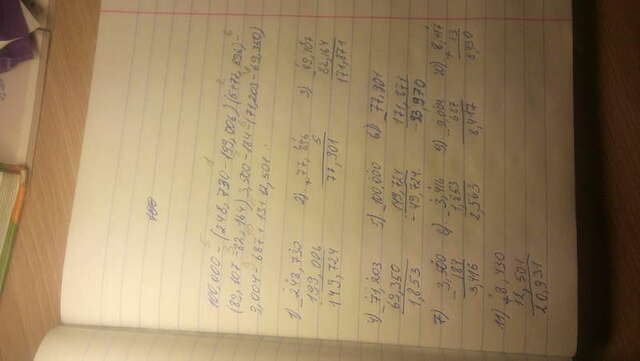 100,000 - (248,730 - 199,006) (5+77,896) -
(89,107 - 82,164) 3,500 - 184 - (71,203 - 69,350)
9,004 - 687 + 13 + 12,501
1) 248,730 2) 77,896 3) 89,107
199,006 5 82,164
149,724 77,901 171,871
4) 71,203 5) 100,000 6) 77,901
69,350 149,724 171,871
1,853 - 49,724 - 93,970
7) 3,500 8) 3,416 9) 9,004 10) 8,417
- 184 - 1,853 - 687 + 13
3,416 2,563 8,417 8,430
11) 8,430
+ 12,501
20,931